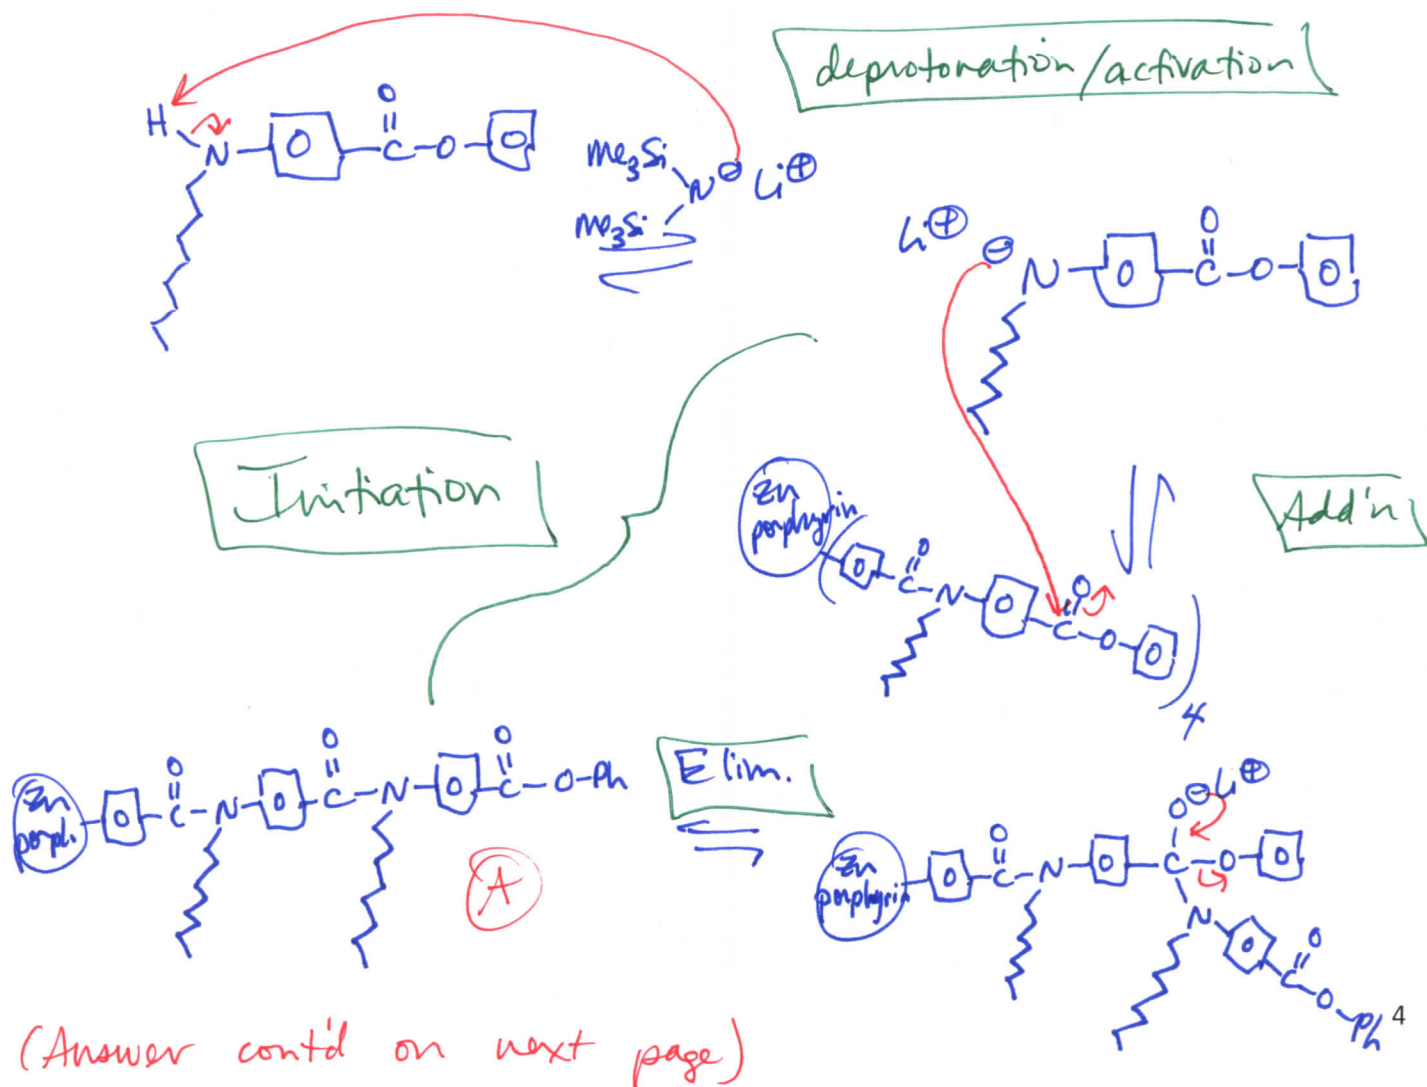 deprotonation/activation
H
O
N
C
O
Me3Si
N ⊖ Li⊕
Me3Si
Li⊕
⊖
N
O
C
O
Initiation
Add'n
Zn
porphyrin
O
C
N
O
C
O
4
Zn
porph.
O
C
N
O
C
N
O
C
O-Ph
A
Elim.
O⊖Li⊕
Zn
porphyrin
O
C
N
C
O
N
O
C
O
Ph
4
(Answer cont'd on next page)